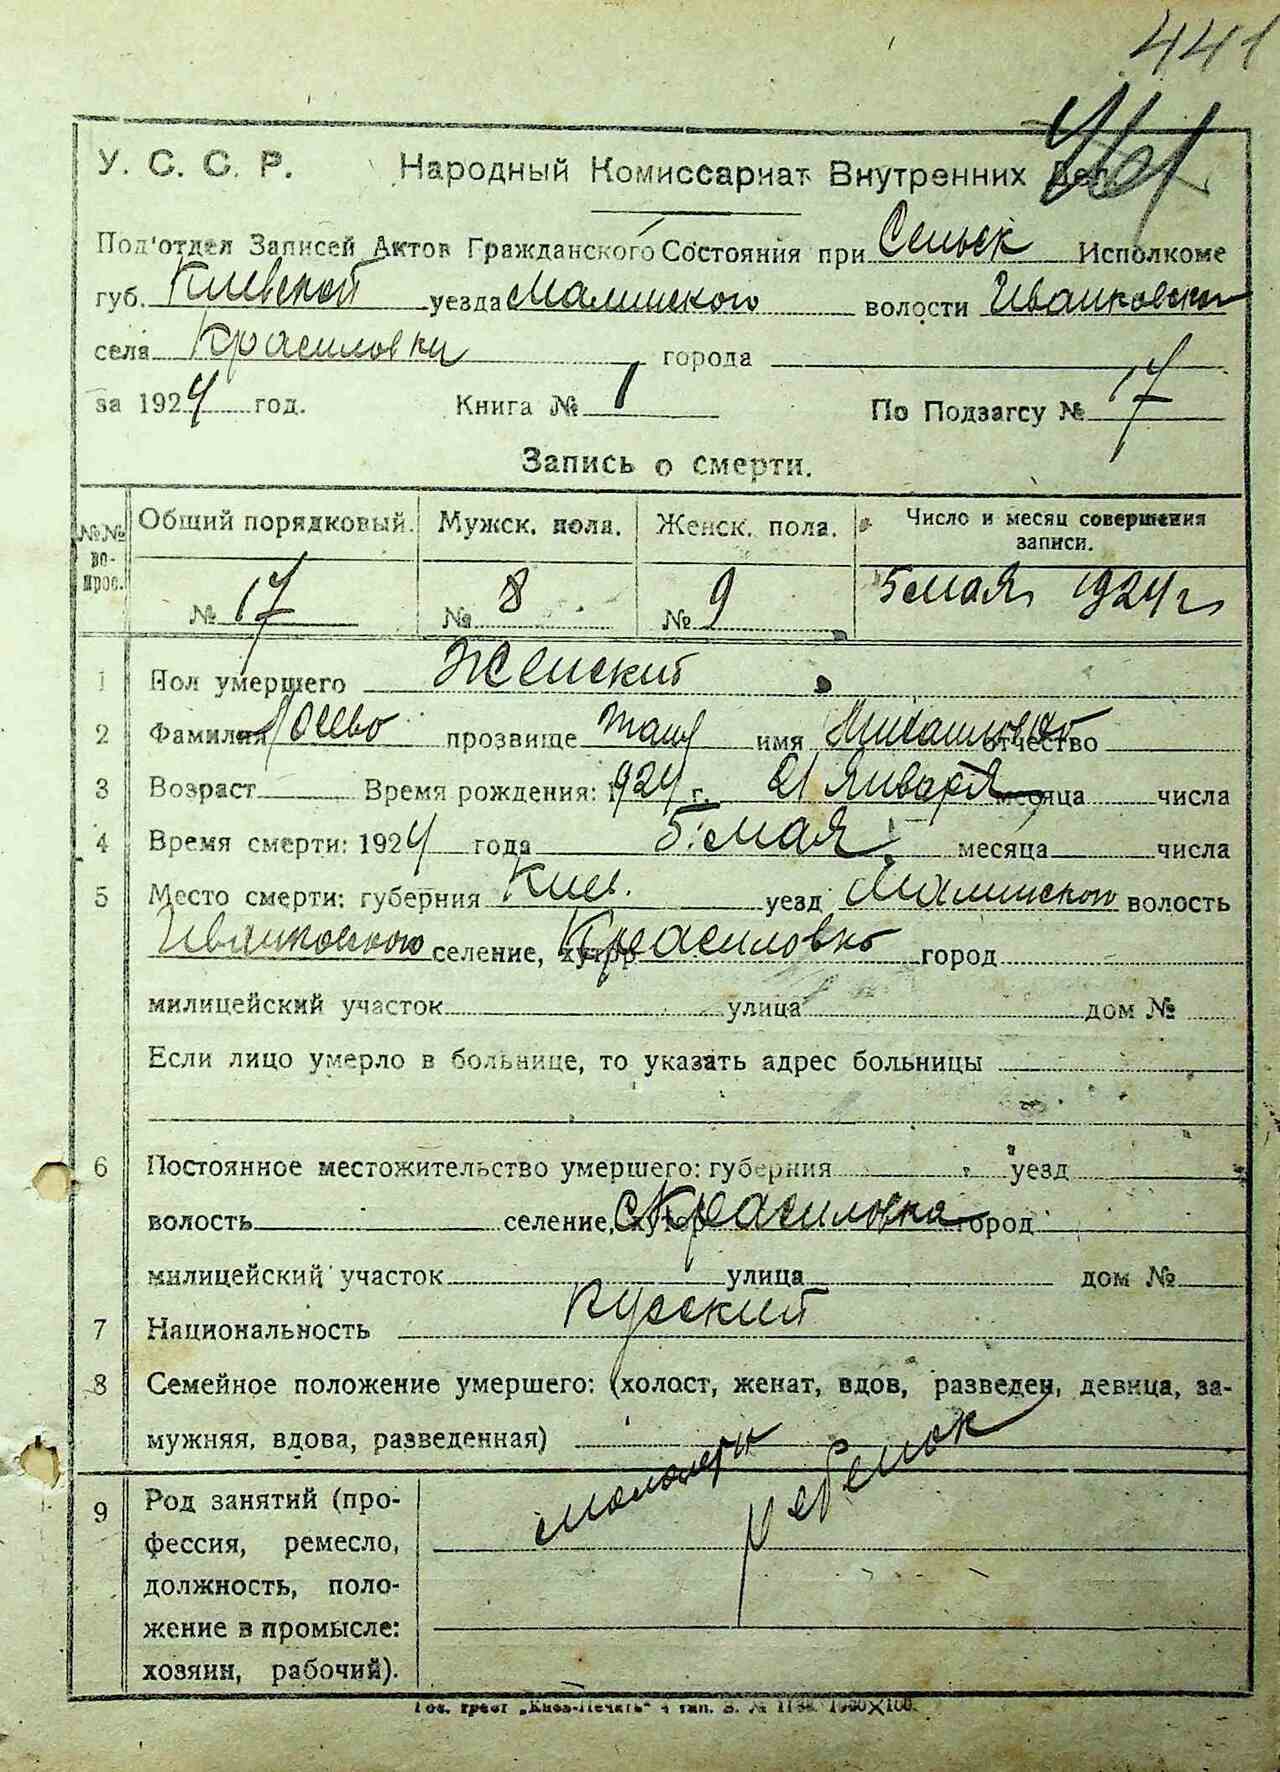 441
У. С. С. Р. Народный Комиссариат Внутренних Дел.
Под'отдел Записей Актов Гражданского Состояния при Сельск Исполкоме
губ. Киевской уезда Малинского волости Иванковской
села Красиловки города
за 1924 год. Книга № 1 По Подзагсу № 17
Запись о смерти.
№№ вопрос. Общий порядковый. Мужск. пола. Женск. пола. Число и месяц совершения записи.
№ 17 № 8 № 9 5 мая 1924 г
1 Пол умершего Женский
2 Фамилия прозвище имя отчество
3 Возраст Время рождения: 1924 г. 21 Января месяца числа
4 Время смерти: 1924 года 5 мая месяца числа
5 Место смерти: губерния Киев. уезд Малинского волость
Иванковского селение, хутор Красиловка город
милицейский участок улица дом №
Если лицо умерло в больнице, то указать адрес больницы
6 Постоянное местожительство умершего: губерния уезд
волость селение, хутор с Красиловка город
милицейский участок улица дом №
7 Национальность Русский
8 Семейное положение умершего: (холост, женат, вдов, разведен, девица, за-
мужняя, вдова, разведенная)
9 Род занятий (про-
фессия, ремесло,
должность, поло-
жение в промысле:
хозяин, рабочий).
ребенок
Гос. трест „Киев-Печать“ 4 тип.